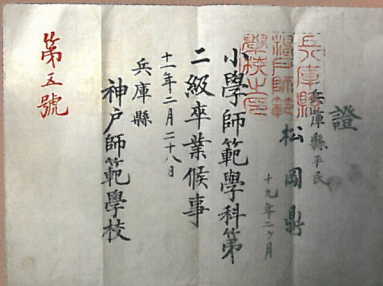 證
兵庫縣平民
松岡鼎
十九年二ヶ月
小學師範學科第
二級卒業候事
十一年二月二十八日
兵庫縣
神戸師範學校
第五號
兵庫縣
神戸師範
學校之印